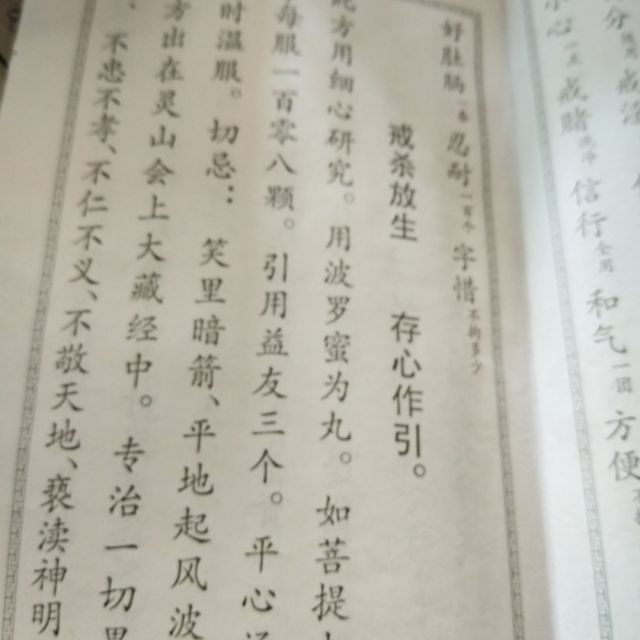 和气一团 方便
信行全用
好肚肠一条 忍耐一百个 字惜不拘多少
戒杀放生 存心作引。
方用细心研究。用波罗蜜为丸。如菩提
每服一百零八颗。引用益友三个。平心
时温服。切忌：笑里暗箭、平地起风波
方出在灵山会上大藏经中。专治一切
不忠不孝、不仁不义、不敬天地、亵渎神明